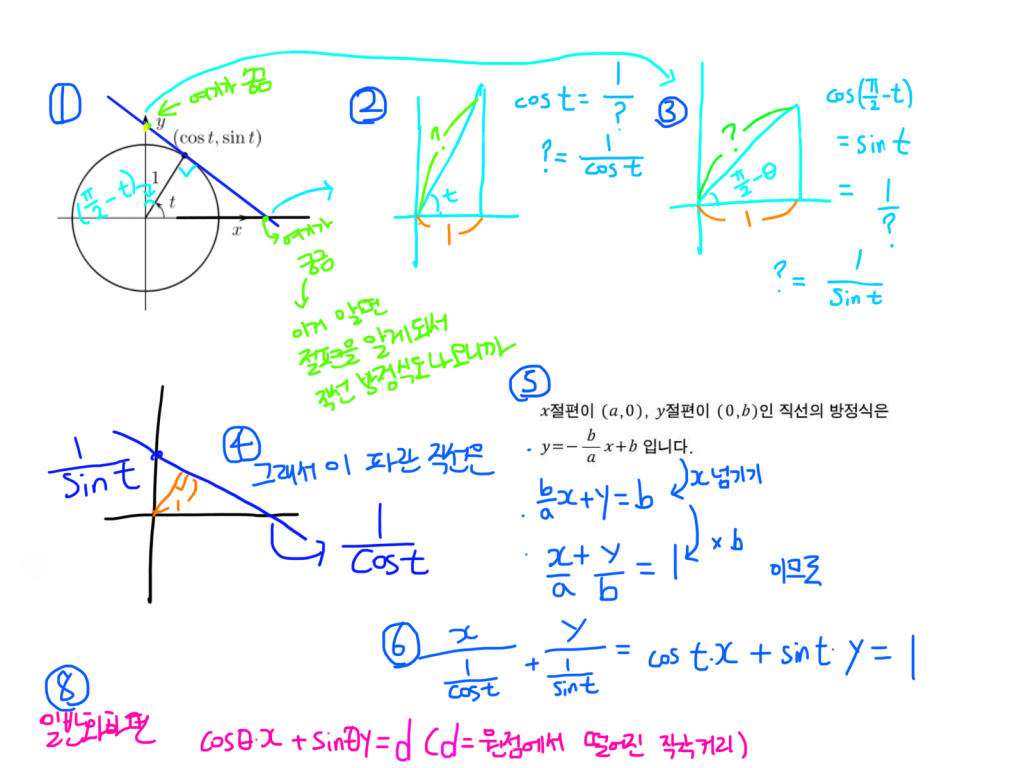 ①
여기가 궁금
y
(cos t, sin t)
1
t
(π/2 - t)
x
여기가
궁금
이거 알면
절편을 알게되서
직선 방정식도 나오니까
②
?
t
1
cos t = 1/?
? = 1/cos t
③
?
π/2 - θ
1
cos(π/2 - t)
= sin t
= 1/?
? = 1/sin t
④
그래서 이 파란 직선은
1/sin t
1
1/cos t
⑤
x절편이 (a,0), y절편이 (0,b)인 직선의 방정식은
y=- b/a x+b 입니다.
x 넘기기
b/a x + y = b
× b
x/a + y/b = 1
이므로
⑥ x/(1/cos t) + y/(1/sin t) = cos t·x + sin t·y = 1
⑧
일반화하면
cosθ·x + sinθy = d (d = 원점에서 떨어진 직각거리)